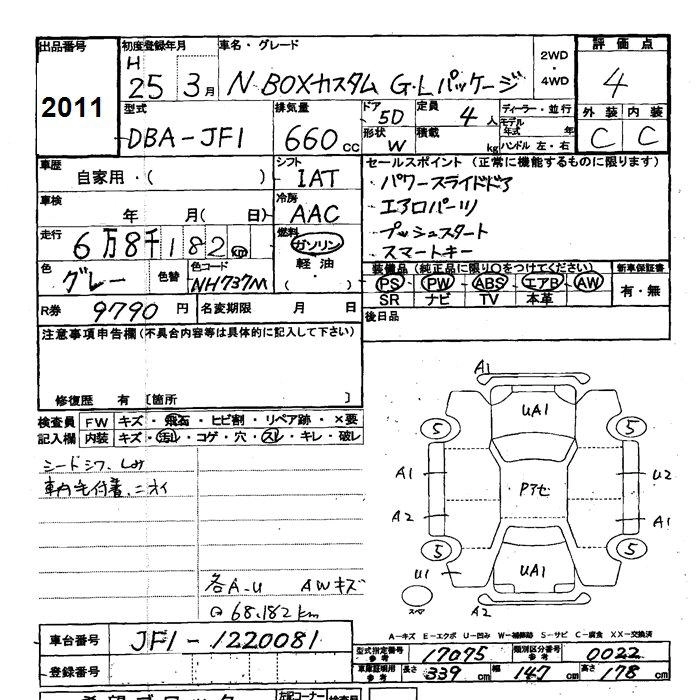 出品番号 初度登録年月 車名・グレード 評価点
2011 H 25 3月 N-BOXカスタム G・Lパッケージ 2WD・4WD 4
型式 排気量 ドア 5D 定員 4人 ディーラー・並行 外装 内装
DBA-JF1 660cc 形状 W 積載 kg モデル年式 年 ハンドル 左・右 C C
車歴 シフト セールスポイント (正常に機能するものに限ります)
自家用・( ) IAT パワースライドドア
車検 年 月( 日) 冷房 AAC エアロパーツ
走行 6万8千182km 燃料 ガソリン プッシュスタート
軽油 スマートキー
色 グレー 色替 色コード NH737M ( )
装備品 (純正品に限り○をつけてください) 新車保証書
PS PW ABS エアB AW 有・無
SR ナビ TV 本革
R券 9790円 名変期限 月 日 後日品
注意事項申告欄(不具合内容等は具体的に記入して下さい)
修復歴 有 [箇所 ]
検査員 FW キズ・飛石・ヒビ割・リペア跡・×要
記入欄 内装 キズ・汚れ・コゲ・穴・スレ・キレ・破レ
シートシワ、しみ
車内毛付着、ニオイ
各A-U AWキズ
@ 68.182km
A1
UA1
5 5
A1 U2
Pアセ
A2 A1
5 5
U1 UA1
スマ A2
A-キズ E-エクボ U-凹み W-補修跡 S-サビ C-腐食 XX-交換済
車台番号 JF1-1220081
型式指定番号 参考 17075 類別区分番号 参考 0022
登録番号 車庫証明用 参考 長さ 339cm 幅 147cm 高さ 178cm
希望ブロック 左記コーナー